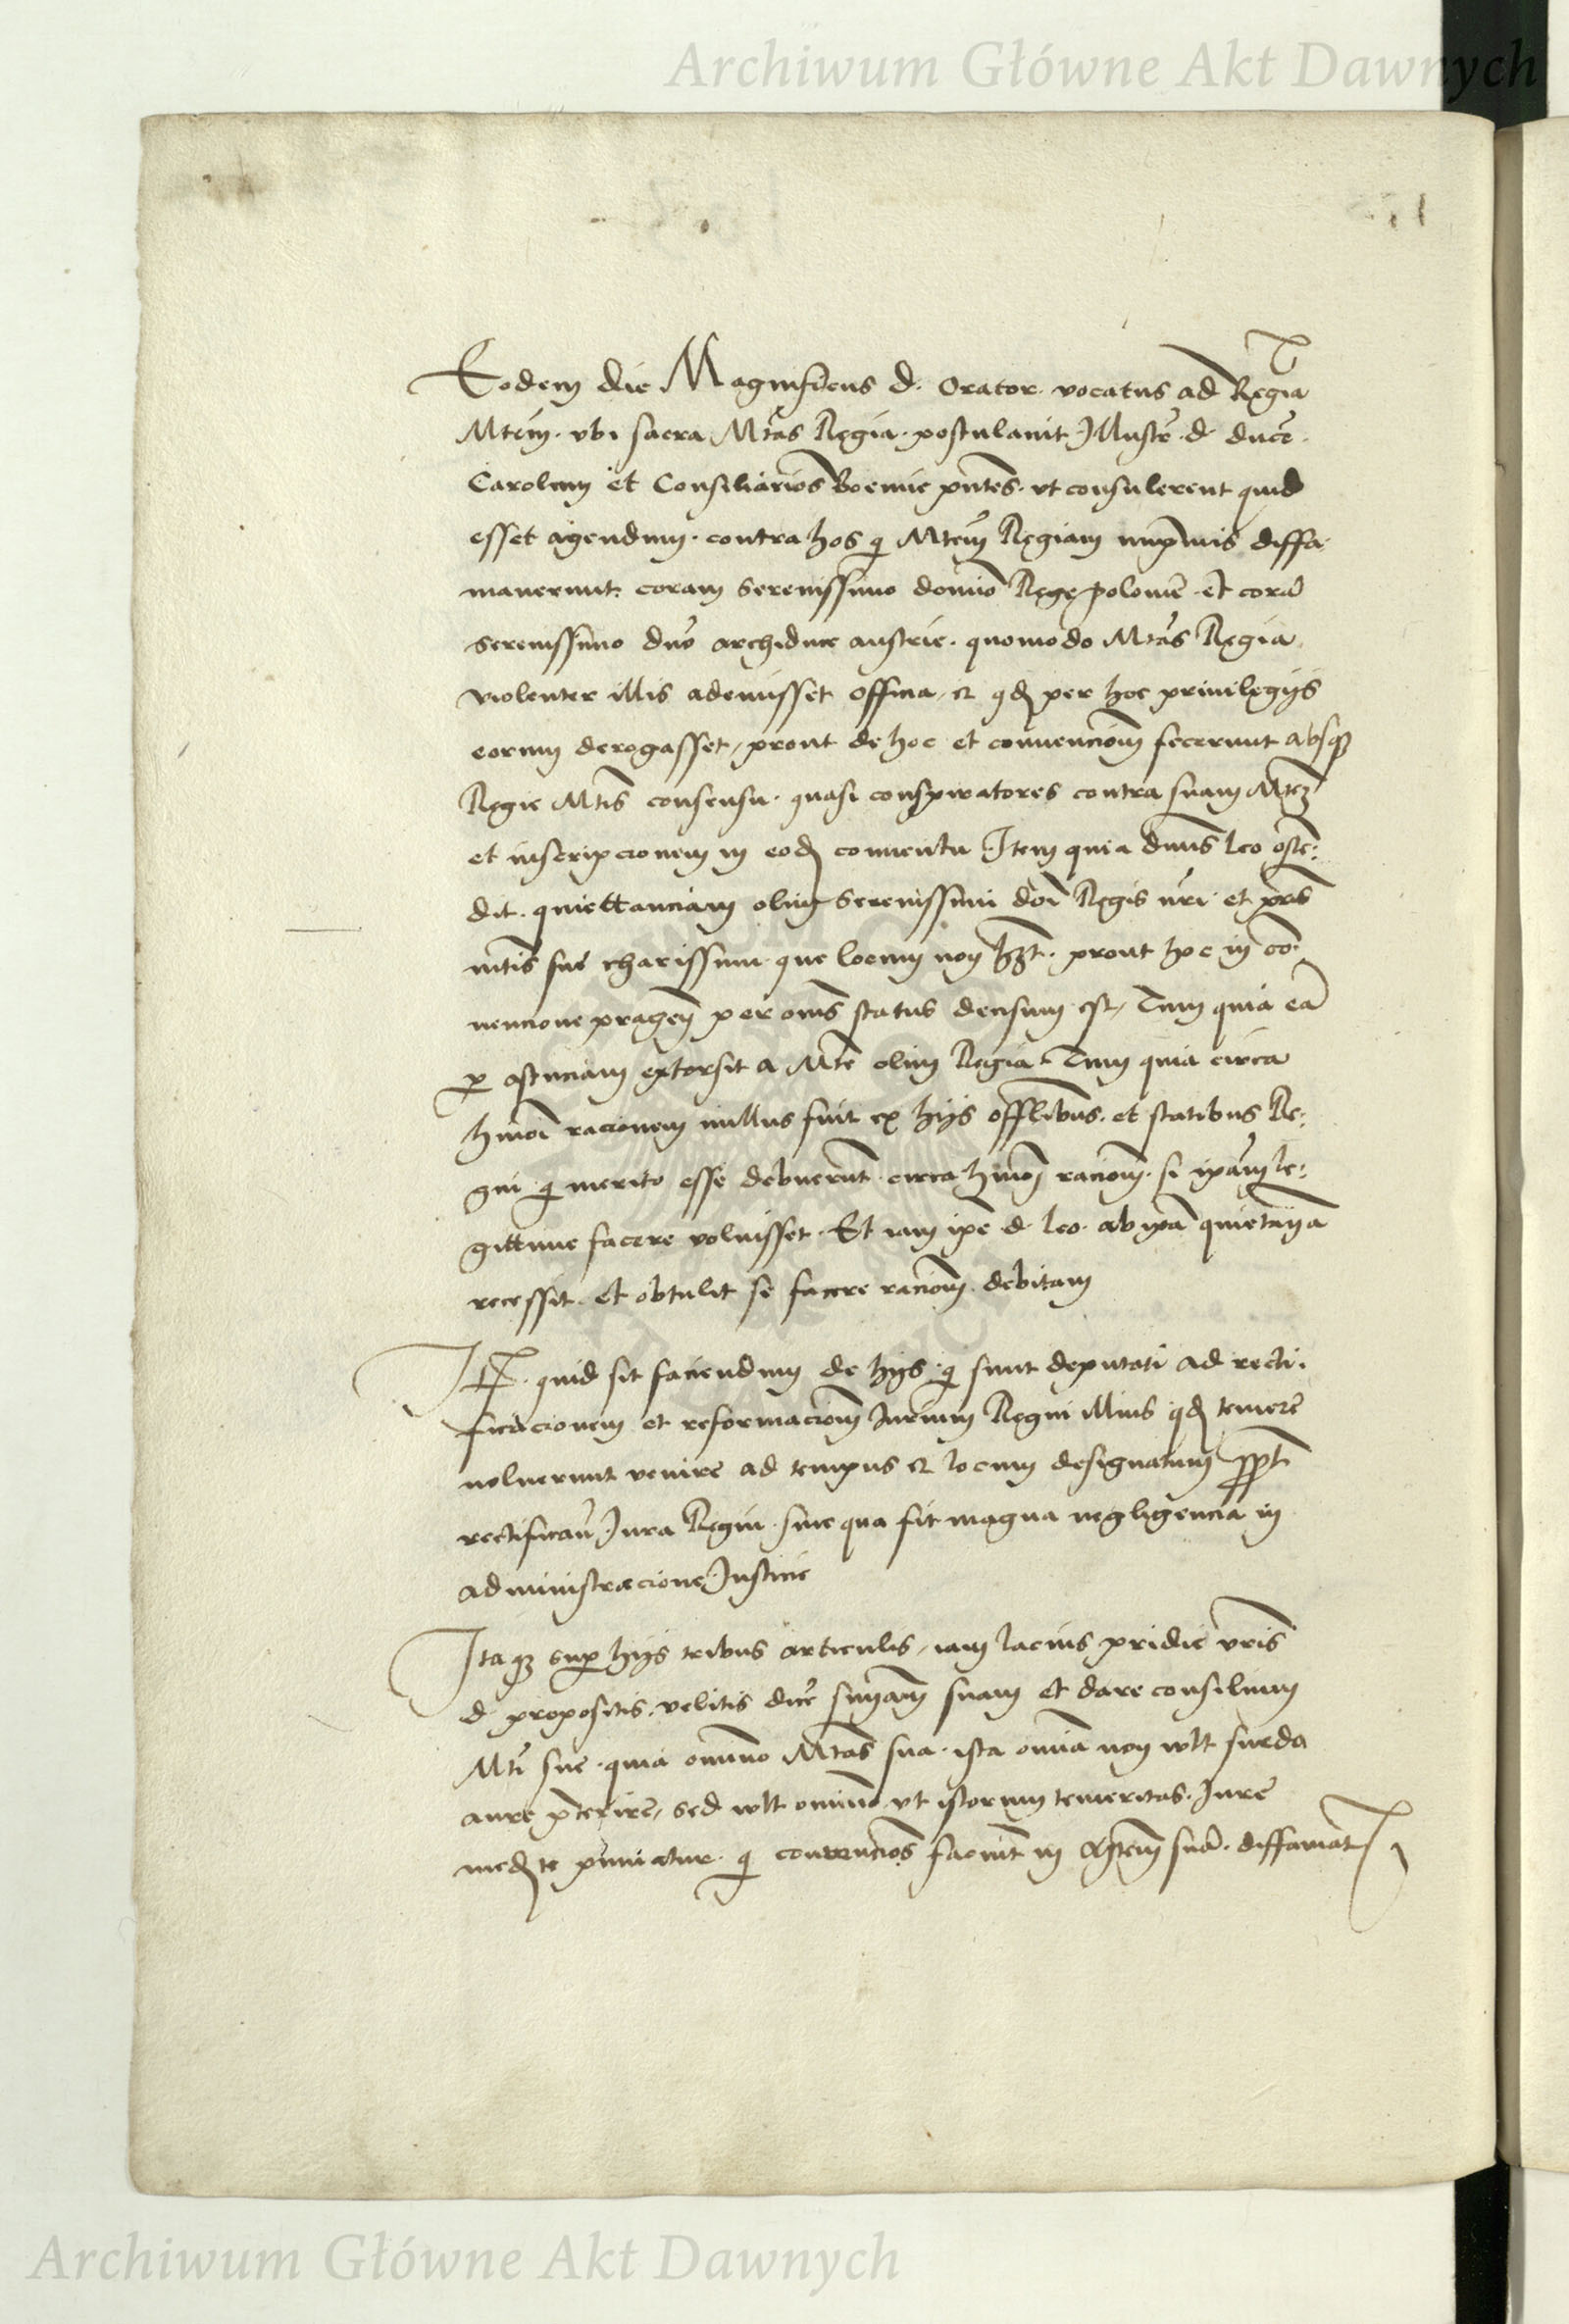 Archiwum Główne Akt Dawnych
Eodem die Magnificus d. Orator vocatus ad Regiã
Mtem. vbi sacra Mtas Regia. postulauit Illustrẽ. d. ducẽ.
Carolum et Consiliarios Boemie pñtes. vt consulerent quid
esset agendum. contra hos q̃ Mtem Regiam diffa
mauerunt. coram serenissimo domĩo Rege polonie et corã
serenissimo dño archiduce austrie. quomodo Mtas Regia
violenter illis ademisset officia, et qđ per hoc priuilegijs
eorum derogasset, prout de hoc et conuenciom̃ fecerunt absq3
Regie Mtis consensu. quasi conspiratores contra suam Mtẽ
et inscripcionem in eođ conuentu Item quia dñus Leo ostẽ:
dit. quiettanciam olim serenissimi doĩ Regis ñri et pr̃is
mtis sue charissimi que locum non hẽt. prout hoc in cõ:
uencione pragen̄ per om̃s status decisum est, Tum quia eã
p astuciam extorsit a Mte olim Regia. Tum quia circa
hmõi racionem nullus fuit ex hijs offilibus. et statibus Re:
gni q̃ merito esse debuerunt. circa hmõi raciom̃. si ipam le:
gittime facere voluisset. Et iam ipe d. Leo. ab ipã quietanciã
recessit. et obtulit se facere raciom̃ debitam
It̃. quid sit faciendum de hijs q̃ sunt deputati ad recti.
ficacionem et reformaciom̃ Iurium Regni illius qđ temere
noluerunt venire ad tempus et locum designatum
Iura Regni. sine qua fit magna negligencia in
administracione Iusticie
Itaq3 sup hijs tribus articulis, iam lacius pridie vr̃is
d propositis. velitis suam et dare consilium
Mti sue. quia omnino Mtas sua. ista omnia non wlt surda
aure p̃terire, sed wlt omnino vt istorum temeritas. Iure
međte puniatur. q̃ conuencio̅s faciunt in Mtem suã. diffamãt
Archiwum Główne Akt Dawnych